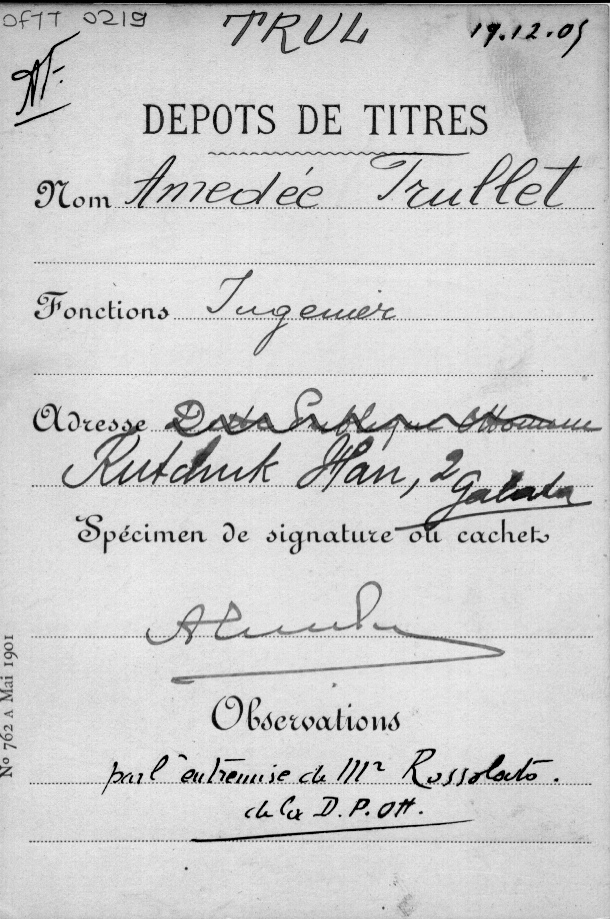 OFTT 0219
TRUL
19.12.05
DEPOTS DE TITRES
Nom Amedée Trullet
Fonctions Ingenier
Adresse Dette Publique Ottomane
Rutchuk Han, 2 Galata
Spécimen de signature ou cachet
Observations
par l'entremise de Mr Rossolato.
de la D.P.Ott.
No 762 A Mai 1901